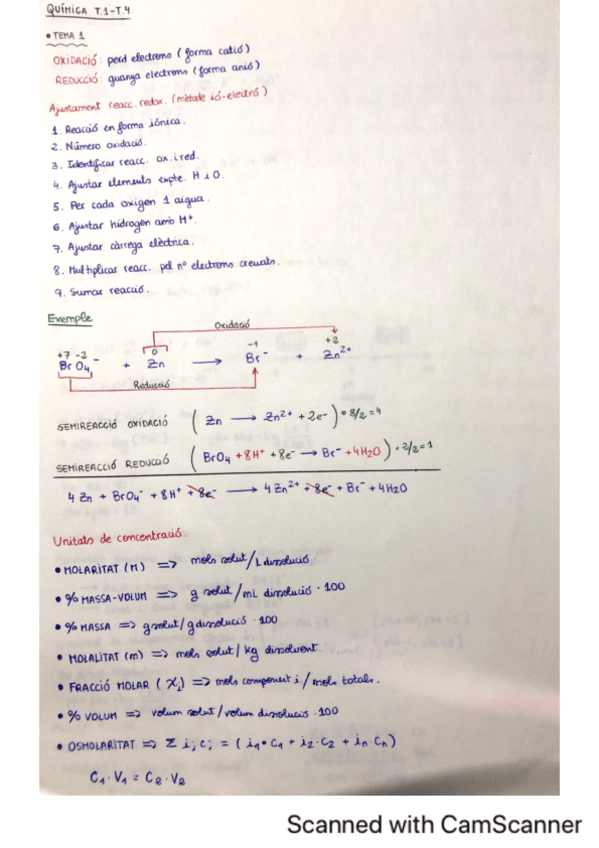 QUÍMICA T.1-T.4
• TEMA 1
OXIDACIÓ: perd electrons (forma catió)
REDUCCIÓ: guanya electrons (forma anió)
Ajustament reacc. redox. (mètode ió-electró)
1. Reacció en forma iónica.
2. Número oxidació.
3. Identificar reacc. ox. i red.
4. Ajustar elements expte. H i O.
5. Per cada oxigen 1 aigua.
6. Ajustar hidrogen amb H⁺.
7. Ajustar càrrega elèctrica.
8. Multiplicar reacc. pel nº electrons creuats.
9. Sumar reacció.
Exemple
Oxidació
+7 -2 0 -1 +2
BrO₄⁻ + Zn ⟶ Br⁻ + Zn²⁺
Reducció
SEMIREACCIÓ OXIDACIÓ (Zn ⟶ Zn²⁺ + 2e⁻) • 8/2 = 4
SEMIREACCIÓ REDUCCIÓ (BrO₄ + 8H⁺ + 8e⁻ → Br⁻ + 4H₂O) • 2/2 = 1
4 Zn + BrO₄⁻ + 8H⁺ + 8e⁻ ⟶ 4 Zn²⁺ + 8e⁻ + Br⁻ + 4H₂O
Unitats de concentració.
• MOLARITAT (M) => mols solut/L dissolució
• % MASSA-VOLUM => g solut/mL dissolució · 100
• % MASSA => g solut/g dissolució · 100
• MOLALITAT (m) => mols solut/kg dissolvent
• FRACCIÓ MOLAR (χᵢ) => mols component i/mols totals.
• % VOLUM => volum solut/volum dissolució · 100
• OSMOLARITAT => Σ iⱼ cⱼ = (i₁ • C₁ + i₂ · C₂ + iₙ Cₙ)
C₁ · V₁ = C₂ · V₂
Scanned with CamScanner